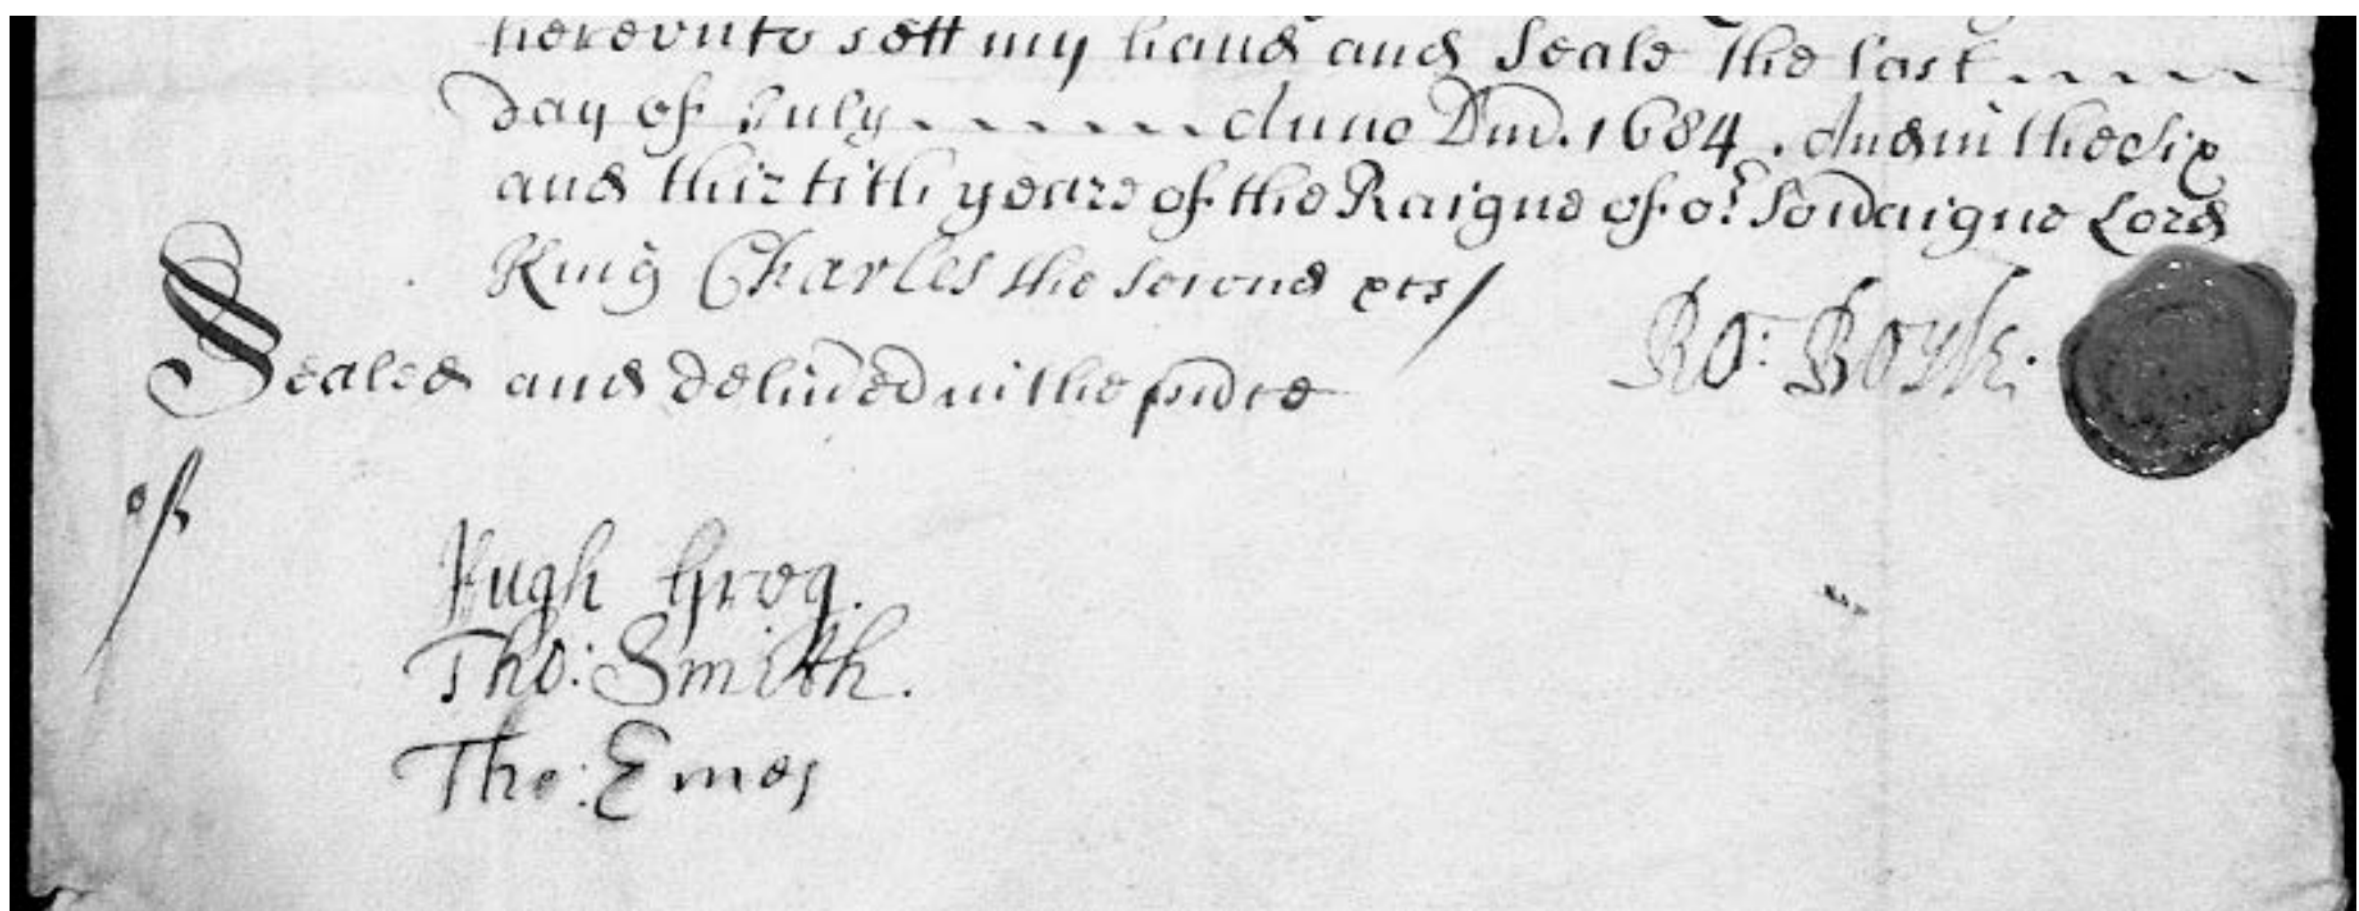 herevnto sett my hand and Seale the last
day of July Anno Dm̄. 1684. And in the Six
and thirtith yeare of the Raigne of or: Sov̄aigne Lord
King Charles the second
Ro: Boyle.
Sealed and deliv̄ed in the p̄nce
of
Hugh Greg.
Tho: Smith.
Tho: Emes